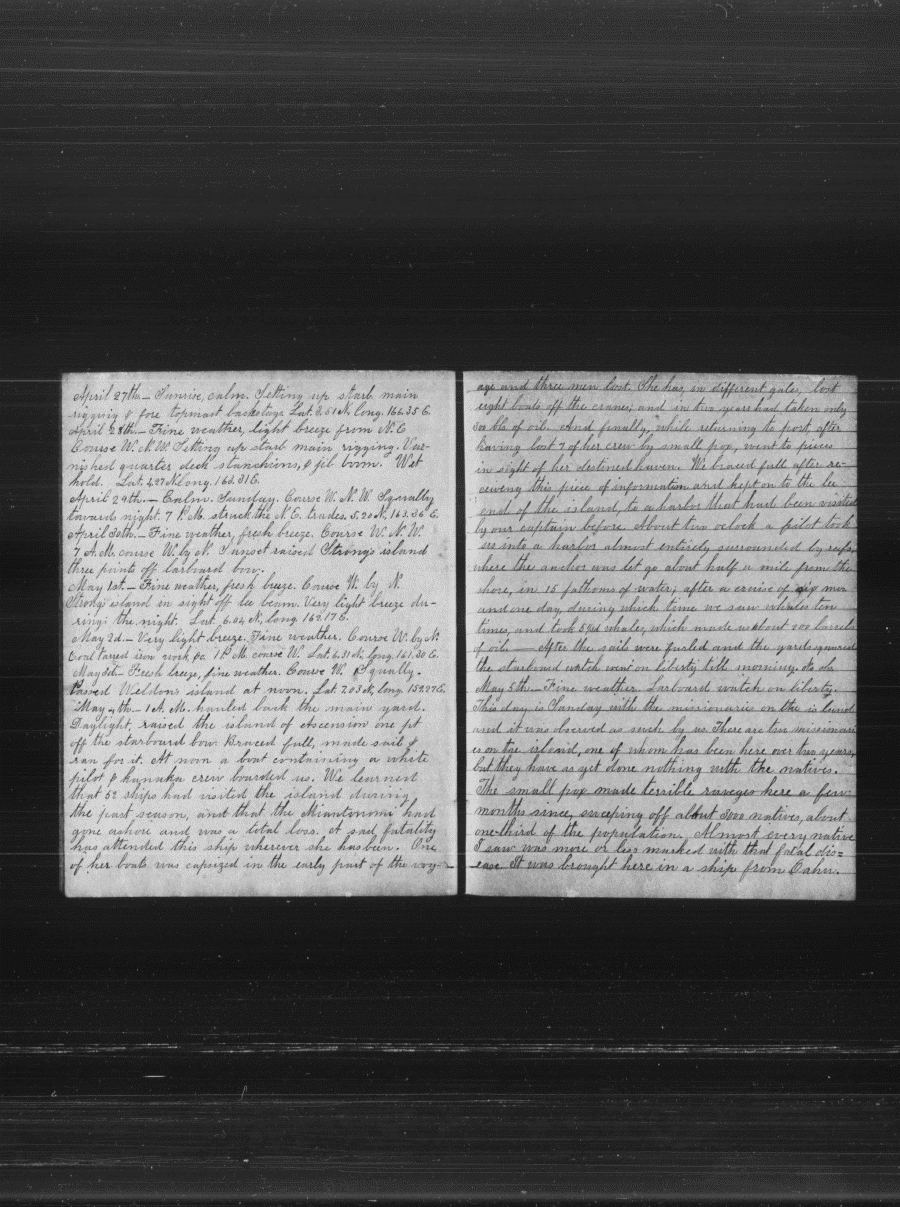 April 27th — Sunrise, calm. Setting up starb main
rigging & fore topmast backstays Lat. 3,51 N, long. 166.35 E.
April 28th — Fine weather, light breeze from N. E
Course W. N. W. Setting up starb main rigging. Var-
nished quarter deck stanchions, & jib boom. Wet
hold. Lat. 4,27 N Long. 165.31 E.
April 29th. — Calm. Sunday. Course W. N. W. Squally
towards night. 7 P. M. struck the N. E. trades. 5,20 N, 163.36 E.
April 30th — Fine weather, fresh breeze. Course W. N. W.
7 A. M. course W. by N. Sunset raised Strong's island
three points off larboard bow.
May 1st. — Fine weather, fresh breeze. Course W. by N.
Strong's island in sight off lee beam. Very light breeze du-
ring the night. Lat. 6.04 N, long 162.17 E.
May 2d — Very light breeze. Fine weather. Course W. by N.
Coal tarred iron work &c. 1 P. M. course W. Lat. 6,31 N, long. 161,30 E.
May 3d — Fresh breeze, fine weather. Course W. Squally.
Passed Weldons island at noon. Lat. 7.03 N, long. 159.27 E.
May 4th. — 1 A. M. hauled back the main yard.
Daylight, raised the island of Ascension one pt
off the starboard bow. Braced full, made sail &
ran for it. At noon a boat containing a white
pilot & kanaka crew boarded us. We learned
that 52 ships had visited the island during
the past season, and that the Miantinomi had
gone ashore and was a total loss. A sad fatality
has attended this ship wherever she has been. One
of her boats was capsized in the early part of the voy-
age and three men lost. She has, in different gales, lost
eight boats off the cranes; and in two years had taken only
300 bls of oil. And finally, while returning to port, after
having lost 7 of her crew by small pox, went to pieces
in sight of her destined haven. We braced full after re-
ceiving this piece of information and kept on to the lee
end of the island, to a harbor that had been visited
by our captain before. About two oclock a pilot took
us into a harbor almost entirely surrounded by reefs,
where the anchor was let go about half a mile from the
shore, in 15 fathoms of water; after a cruise of six mos
and one day, during which time we saw whales ten
times, and took 5 whales, which made us about 200 barrels
of oil. — After the sails were furled and the yards squared
the starboard watch went on liberty till morning.
May 5th — Fine weather. Larboard watch on liberty.
This day is Sunday with the missionaries on the island
and it was observed as such by us. There are two missionar-
ies on the island, one of whom has been here over two years,
but they have as yet done nothing with the natives.
The small pox made terrible raveges here a few
months since, sweeping off about 3000 natives, about
one-third of the population. Almost every native
I saw was more or less marked with that fatal dis=
ease. It was brought here in a ship from Oahu.